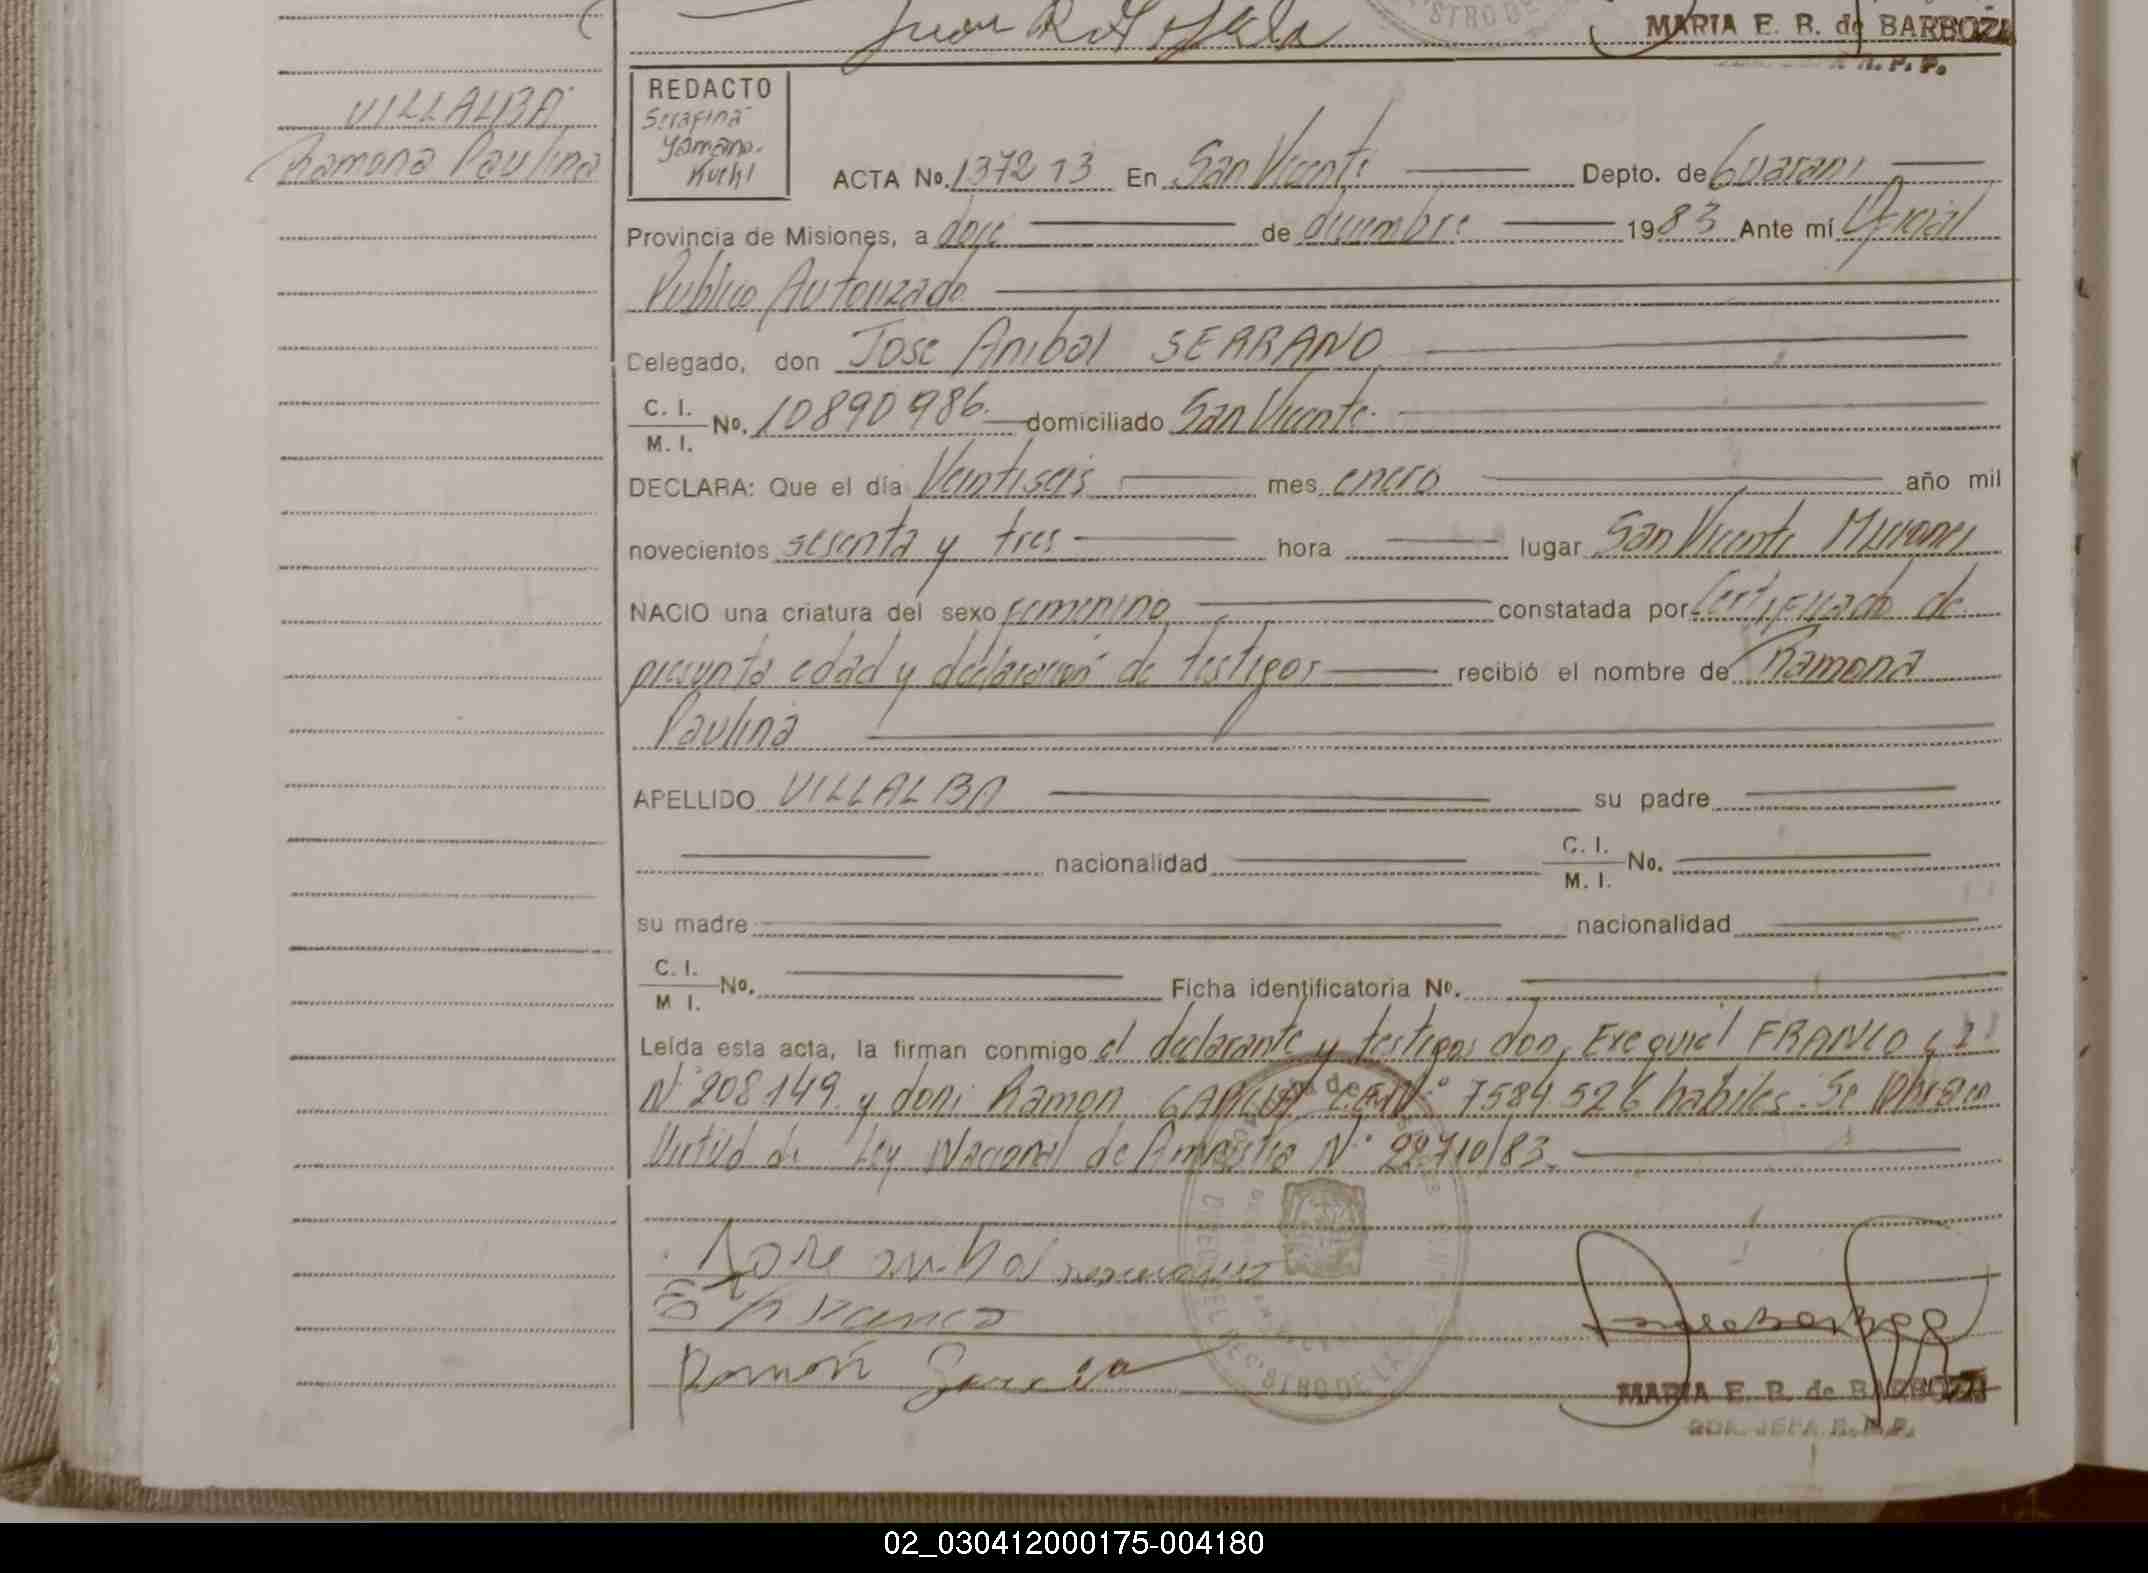 MARIA E. R. de BARBOZA
VILLALBA
Ramona Paulina
REDACTO
Serafina
Yamano
Kuehl
ACTA No. 1372 T3 En San Vicente Depto. de Guarani
Provincia de Misiones, a doce de diciembre 1983 Ante mí Oficial
Publico Autorizado
Delegado, don Jose Anibal SERRANO
C. I. M. I. No. 10890986 domiciliado San Vicente
DECLARA: Que el día Veintiseis mes enero año mil
novecientos sesenta y tres hora lugar San Vicente Misiones
NACIO una criatura del sexo femenino constatada por Certificado de
presunta edad y declaración de testigos recibió el nombre de Ramona
Paulina
APELLIDO VILLALBA su padre
nacionalidad C. I. M. I. No.
su madre nacionalidad
C. I. M I. No. Ficha identificatoria No.
Leída esta acta, la firman conmigo el declarante y testigos don, Exequiel FRANCO C I
N° 208149 y don: Ramon GARCIA C.I.N° 7584526 habiles. Se labra en
Virtud de Ley Nacional de Amnistia N° 22710/83
Jose anibal serrano
Franco
Ramón Garcia
MARIA E. R. de BARBOZA
JEFA R.P.P.
02_030412000175-004180